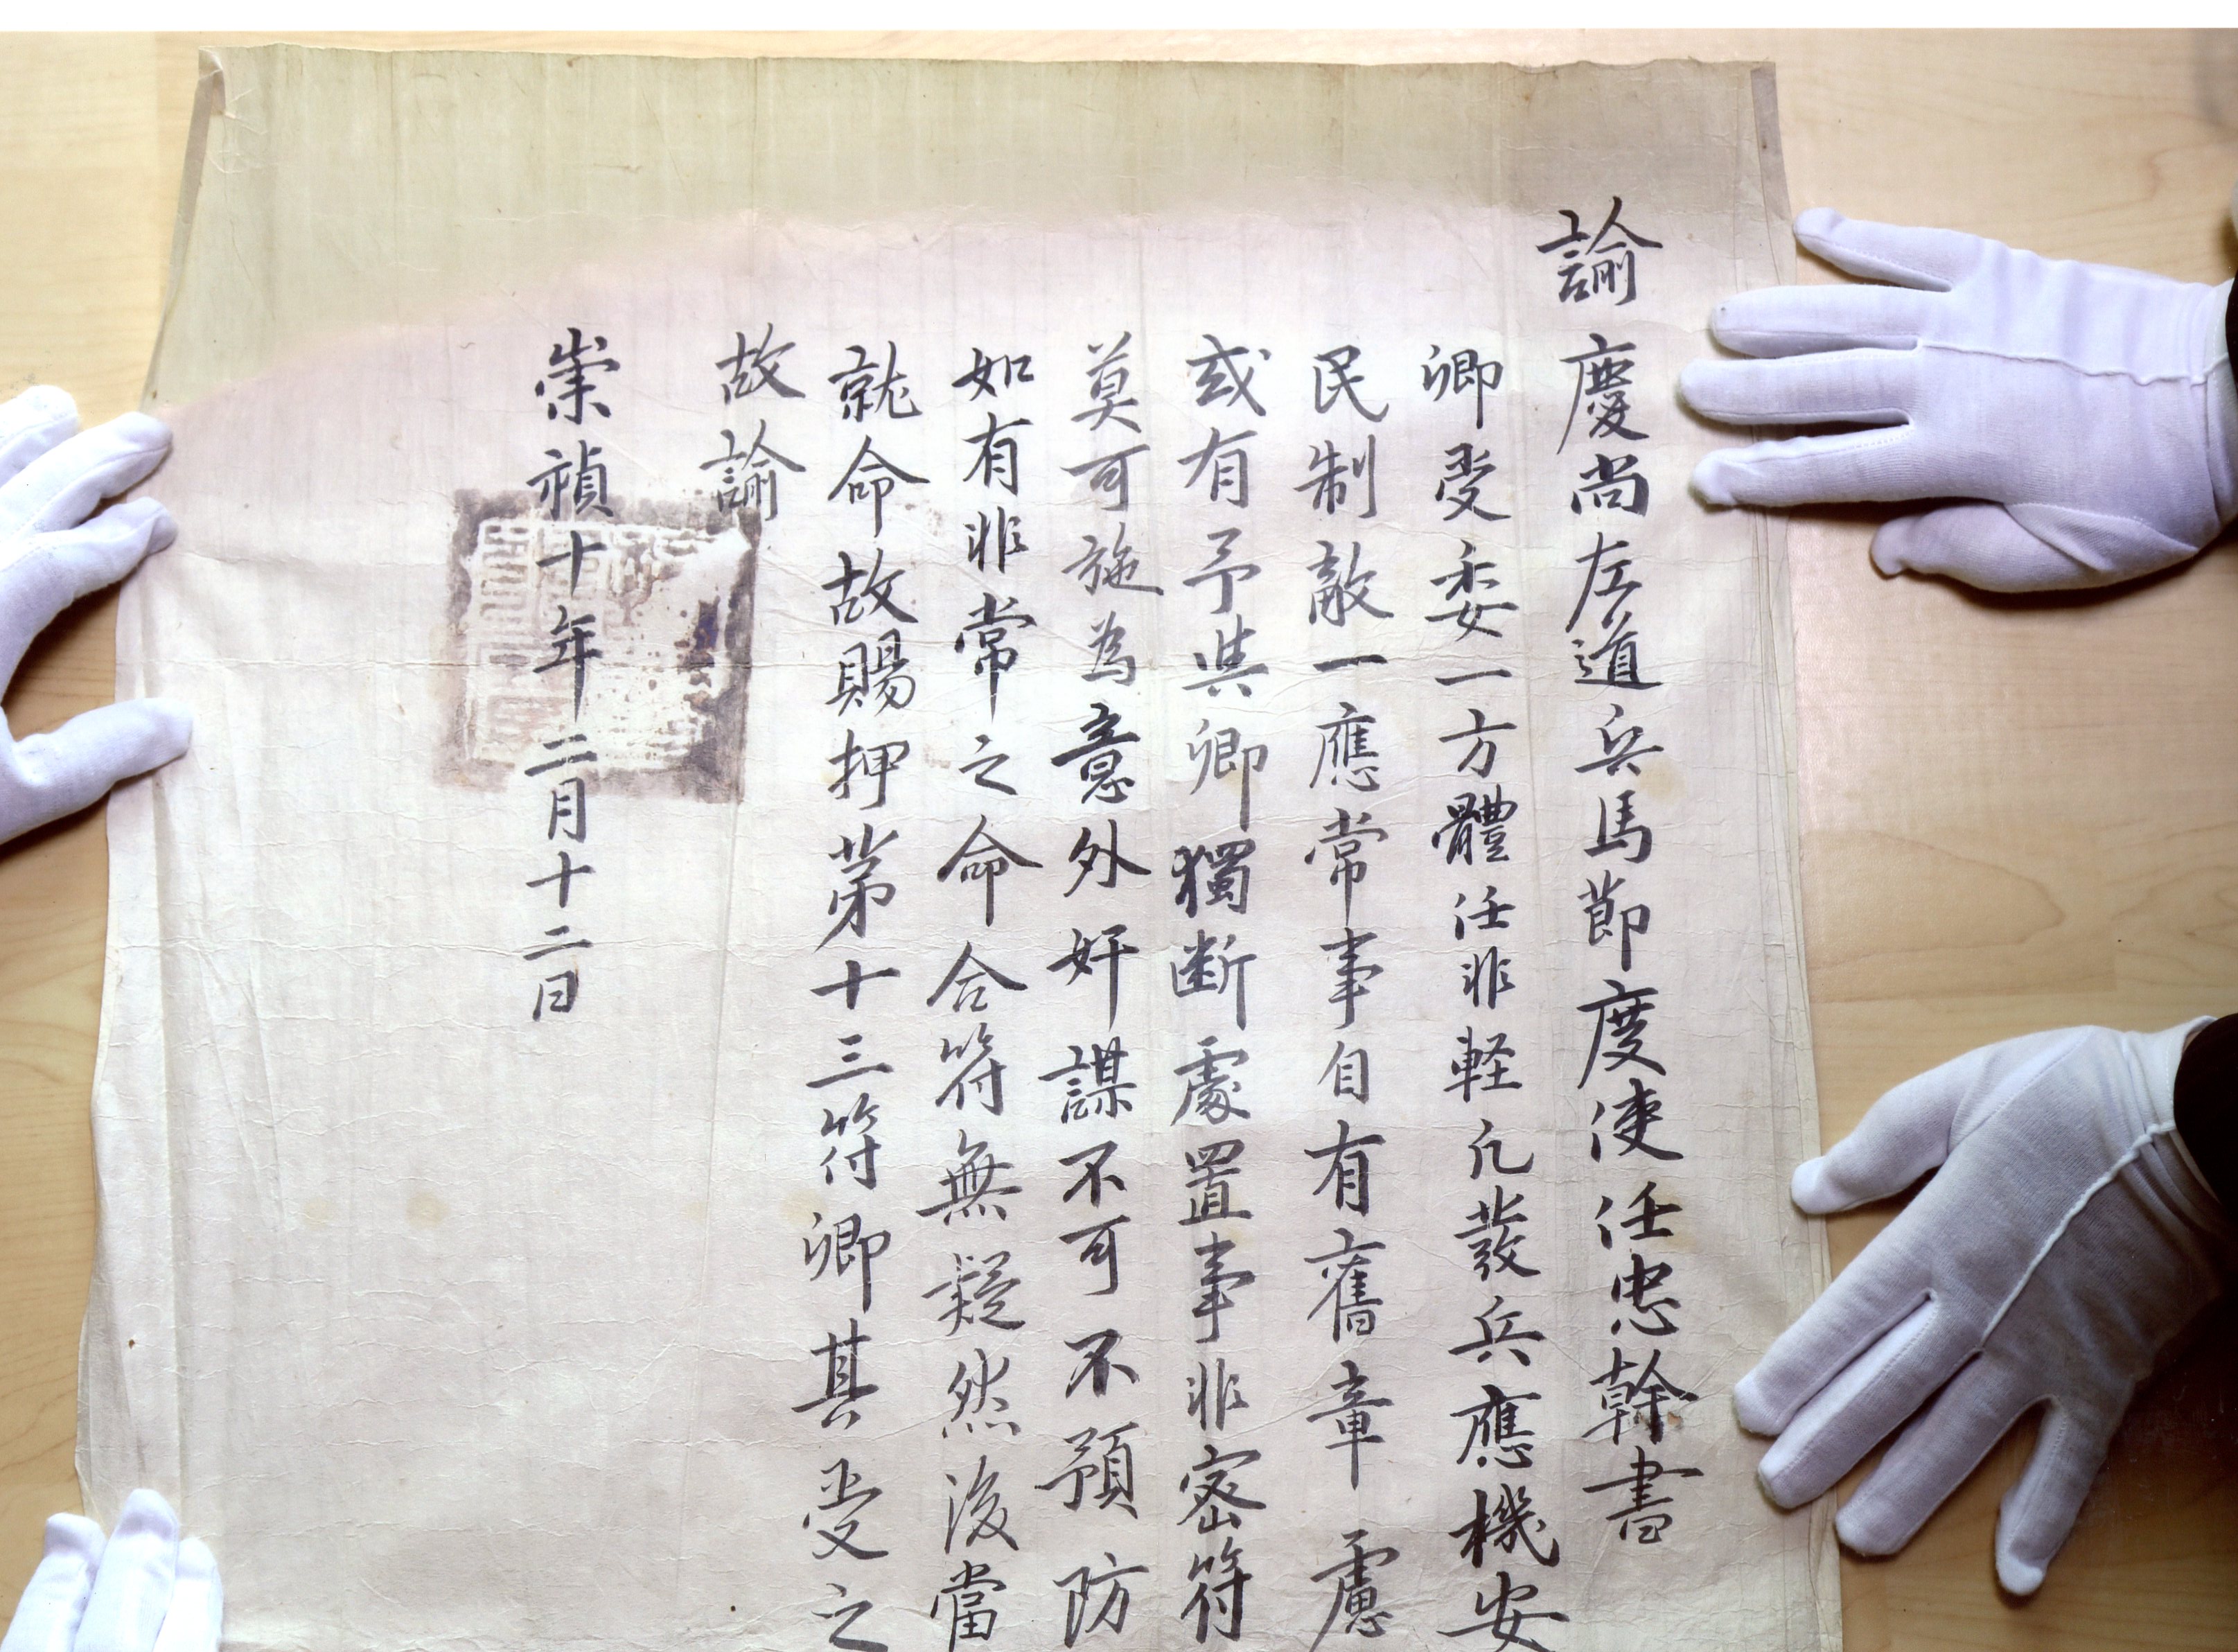 諭慶尚左道兵馬節度使任忠幹書
卿受委一方體任非輕凡發兵應機安
民制敵一應常事自有舊章慮
或有予與卿獨斷處置事非密符
莫可施為意外奸謀不可不預防
如有非常之命合符無疑然後當
就命故賜押第十三符卿其受之
故諭
崇禎十年二月十二日